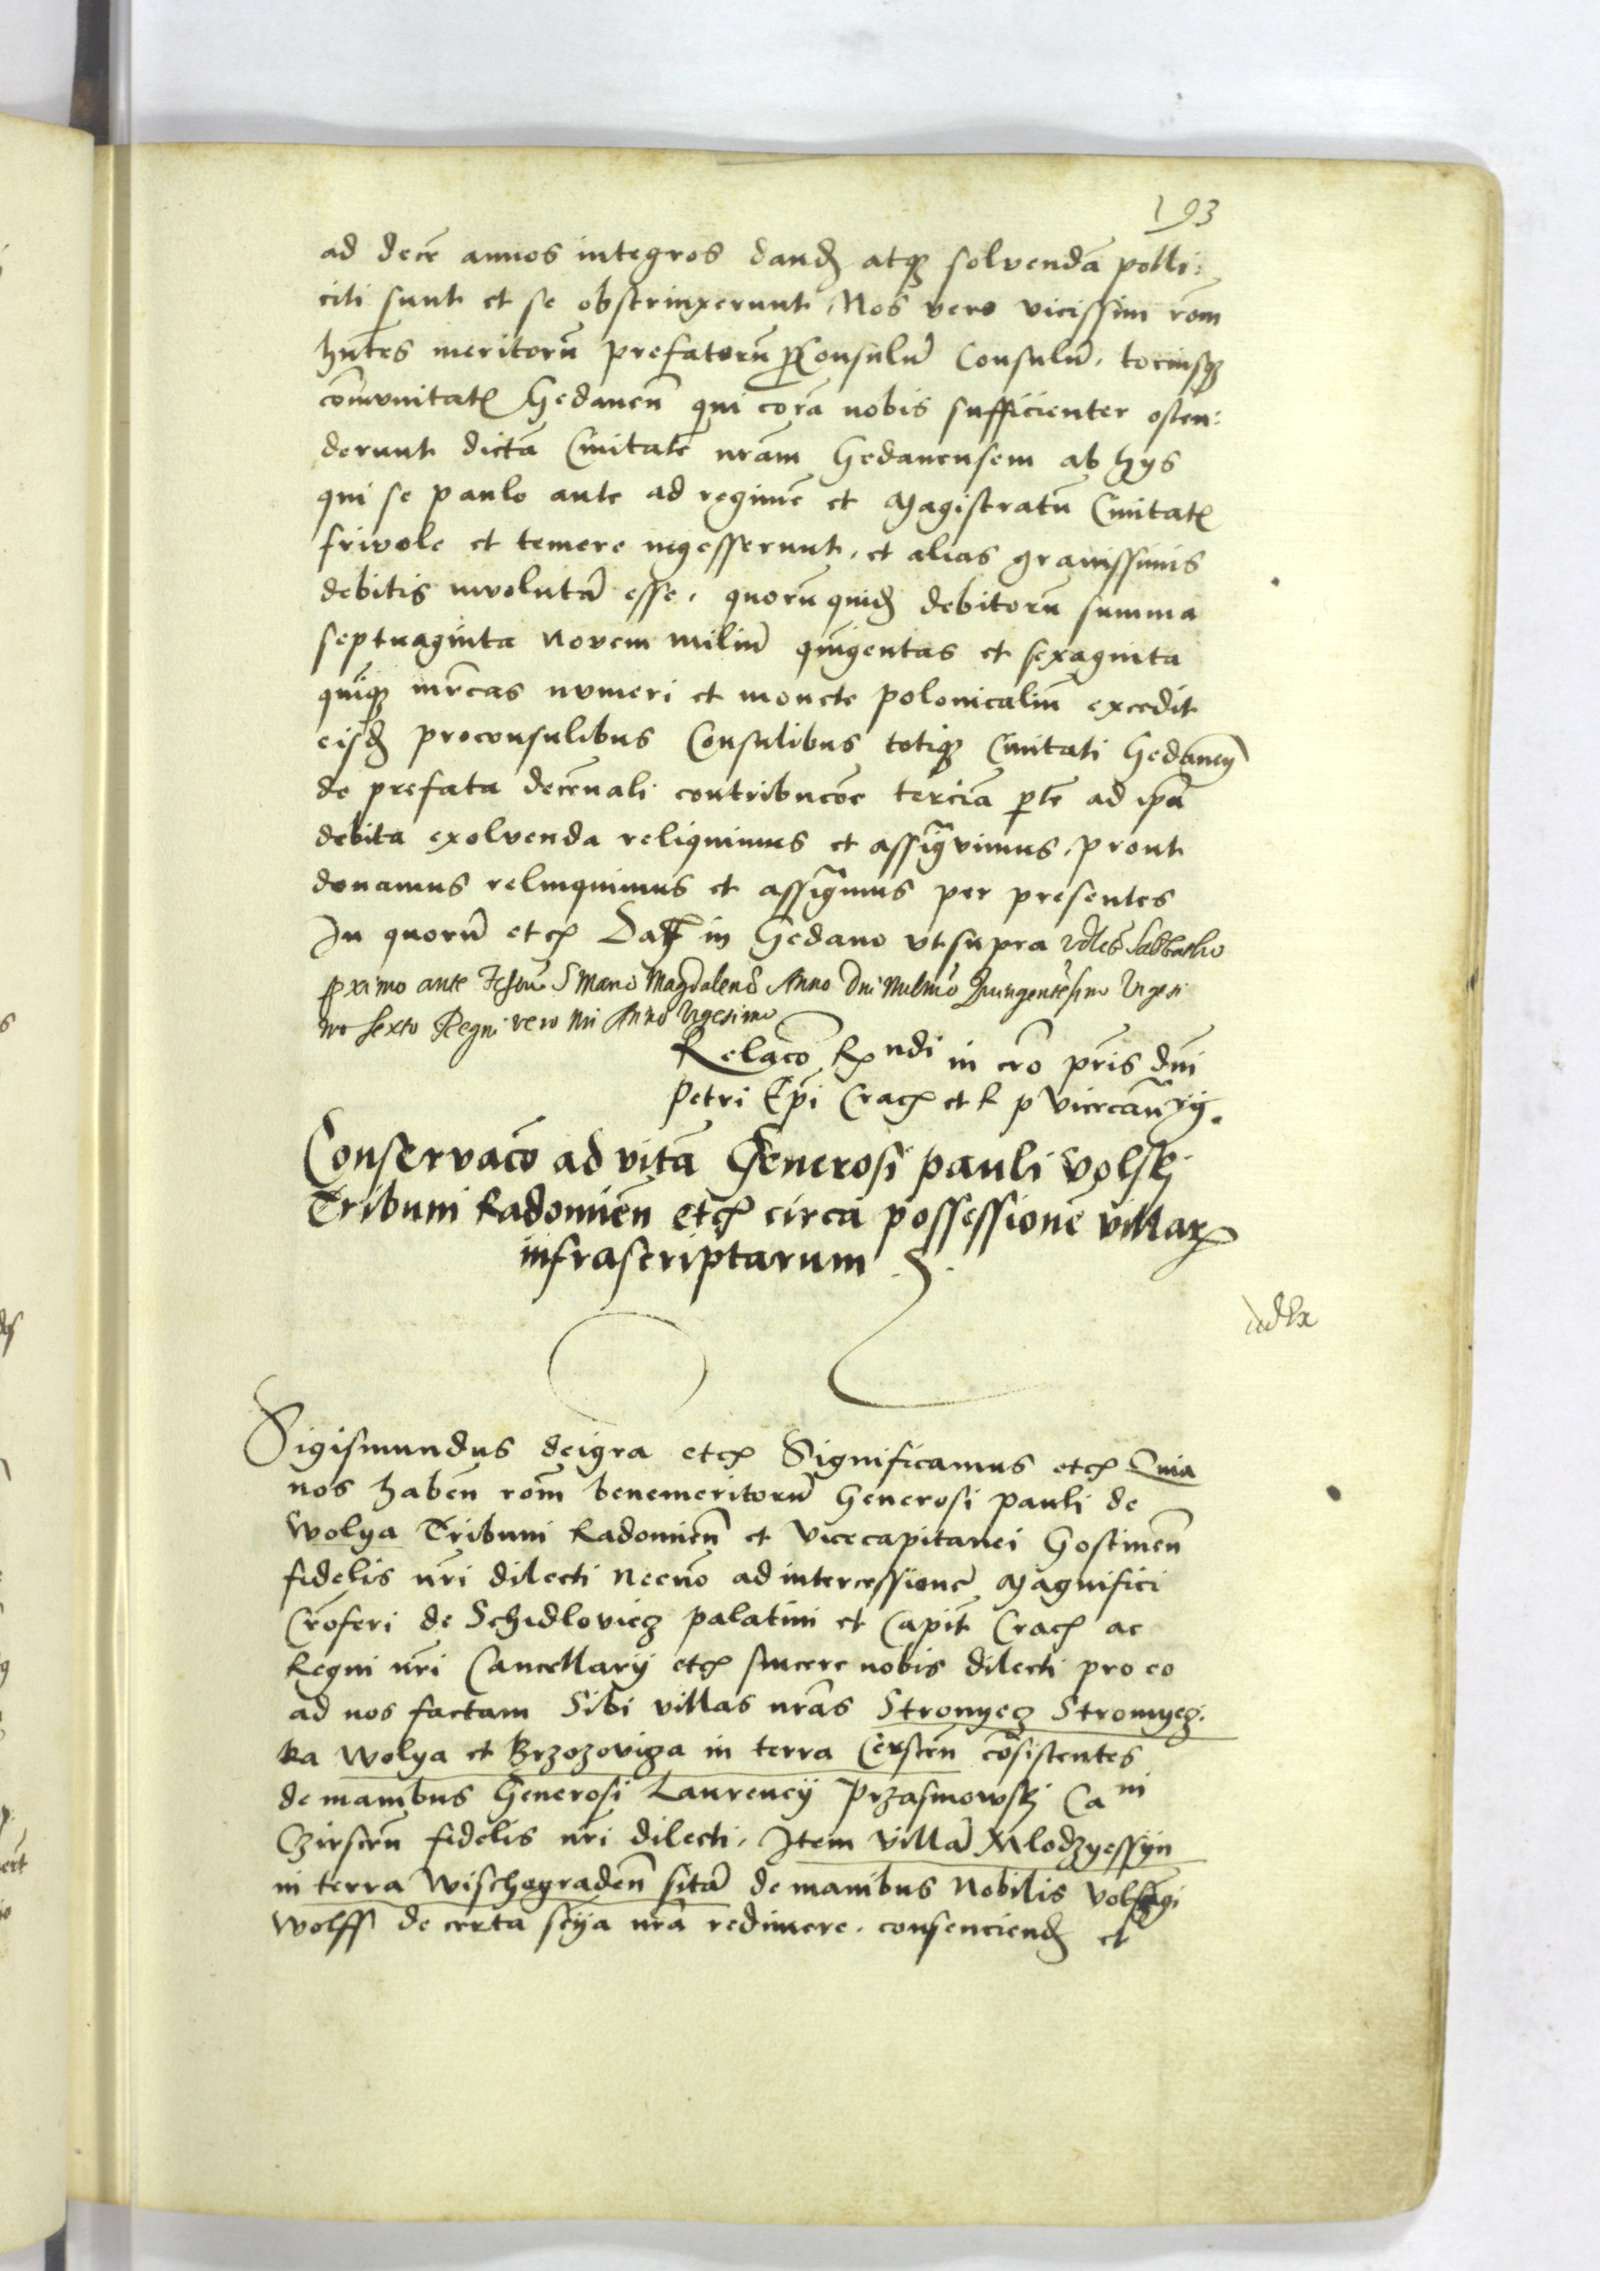 193
ad decē annos integros dand atq solvendā polli:
citi sunt et se obstrinxerunt. Nos vero vicissim rōm
hñtes meritorū prefatorū pConsulū Consulū. tociusq
cōmunitat Gedanen̄ qui corā nobis sufficienter osten:
derunt dictā Civitatē nrām Gedanensem ab hys
qui se paulo ante ad regimē et Magistratū Civitat
frivole et temere ingesserunt. et alias gravissimis
debitis involutā esse. quorū quid debitorū summa
septuaginta Novem miliū quīgentas et sexaginta
quīq mrcas numeri et monete polonicaliū excedit
eisd proconsulibus Consulibus totiq Civitati Gedanen̄
de prefata decēnali contribucōe terciā ptē ad ipā
debita exolvenda reliquimus et assigvimus. prout
donamus relinquimus et assigmus per presentes
In quorū etc Dat in Gedano ut supra videlʒ Sabbatho
pximo ante Festū S Marie Magdalene Anno Dni Milmo Quingentesimo Vigesi
mo sexto Regni vero nri Anno Vigesimo
Relacō R ndi in cro pris dni
Petri Epi Crac et R p Vicecancʳij.
Conservacō ad vitā Generosi pauli volsky
Tribuni Radomien̄ etc circa possessionē villar
infrascriptarum .S.
index
Sigismundus deigra etc Significamus etc Quia
nos haben̄ rōm benemeritorū Generosi pauli de
Wolya Tribuni Radomien̄ et Vicecapitanei Gostinen̄
fidelis nri dilecti Necnō ad intercessionē Magnifici
Crōferi de Schidloviecz palatini et Capit Crac ac
Regni nri Cancellarij etc sincere nobis dilecti pro eo
ad nos factam Sibi villas nrās Stronyecz Stromyecz:
ka Wolya et Brzozovicza in terra Cerscen̄ cōsistentes
de manibus Generosi Laurencij Przasmowsky Ca ni
Czirscen̄ fidelis nri dilecti. Item Villā Mlodzyessyn
in terra Wischegraden̄ sitā de manibus Nobilis Volfgangi
Wolff de certa scīja nrā redimere. consenciend et